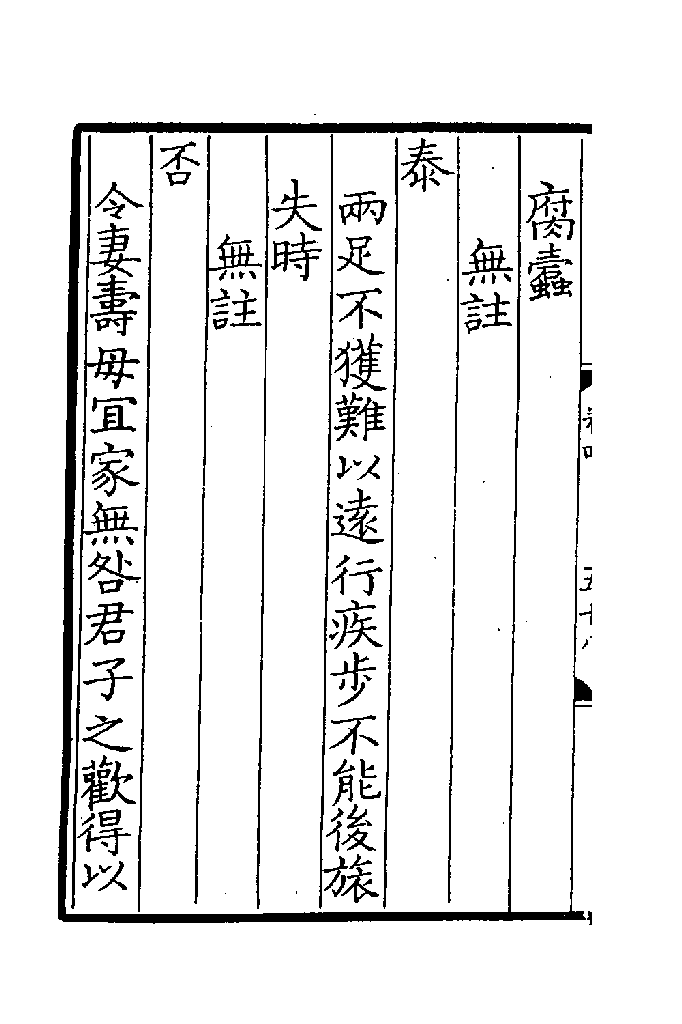 腐蠹
無註
泰
兩足不獲難以遠行疾步不能後旅
失時
無註
否
令妻壽母宜家無咎君子之歡得以
五十八